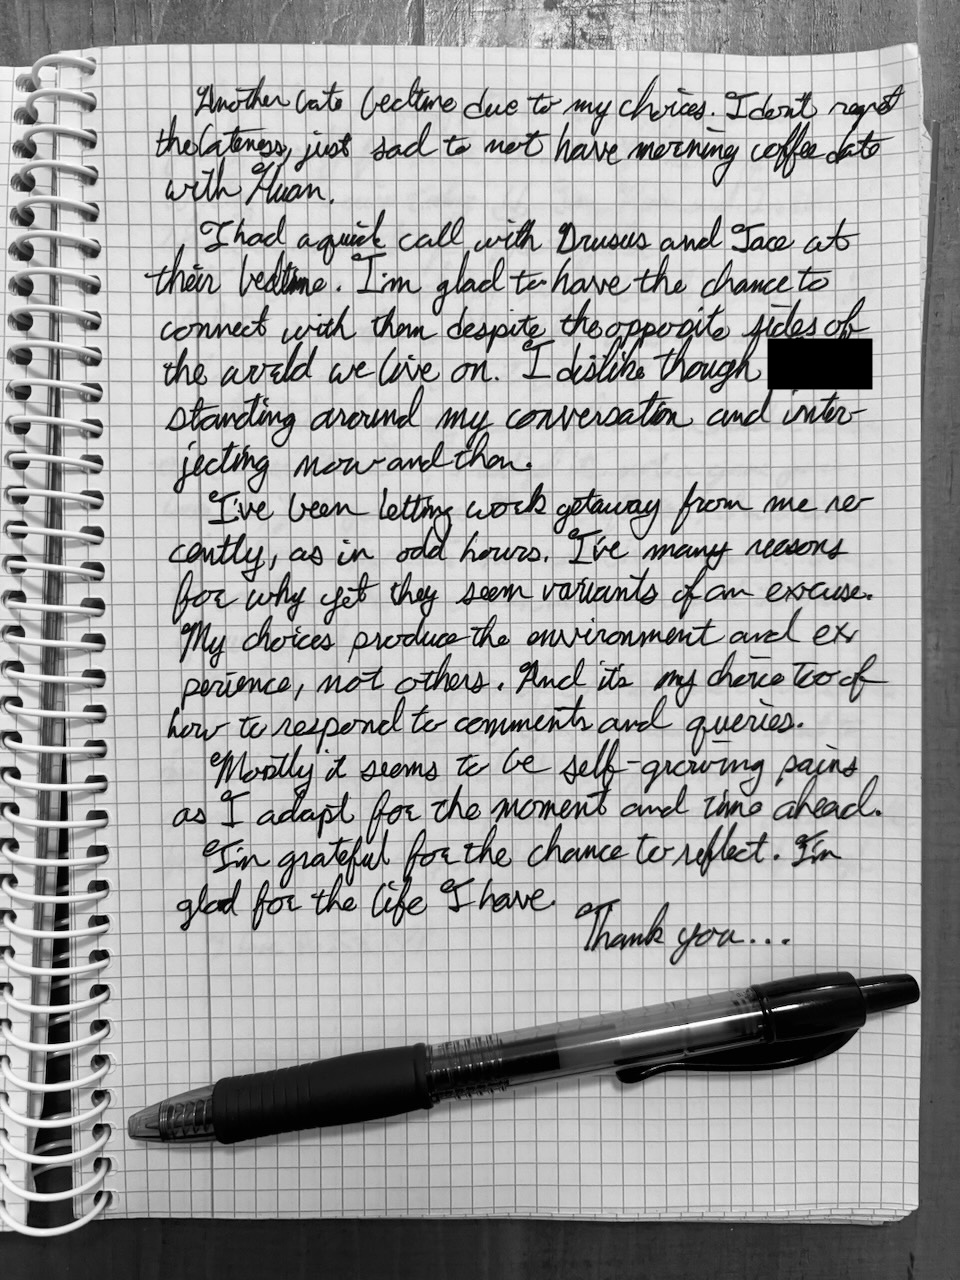 Another late bedtime due to my choices. I don't regret
the lateness, just sad to not have morning coffee date
with Huan.
I had a quick call with Drusus and Jace at
their bedtime. I'm glad to have the chance to
connect with them despite the opposite sides of
the world we live on. I dislike though
standing around my conversation and inter-
jecting now and then.
I've been letting work getaway from me re-
cently, as in odd hours. I've many reasons
for why yet they seem variants of an excuse.
My choices produce the environment and ex
perience, not others. And it's my choice too of
how to respond to comments and queries.
Mostly it seems to be self-growing pains
as I adapt for the moment and time ahead.
I'm grateful for the chance to reflect. I'm
glad for the life I have.
Thank you...